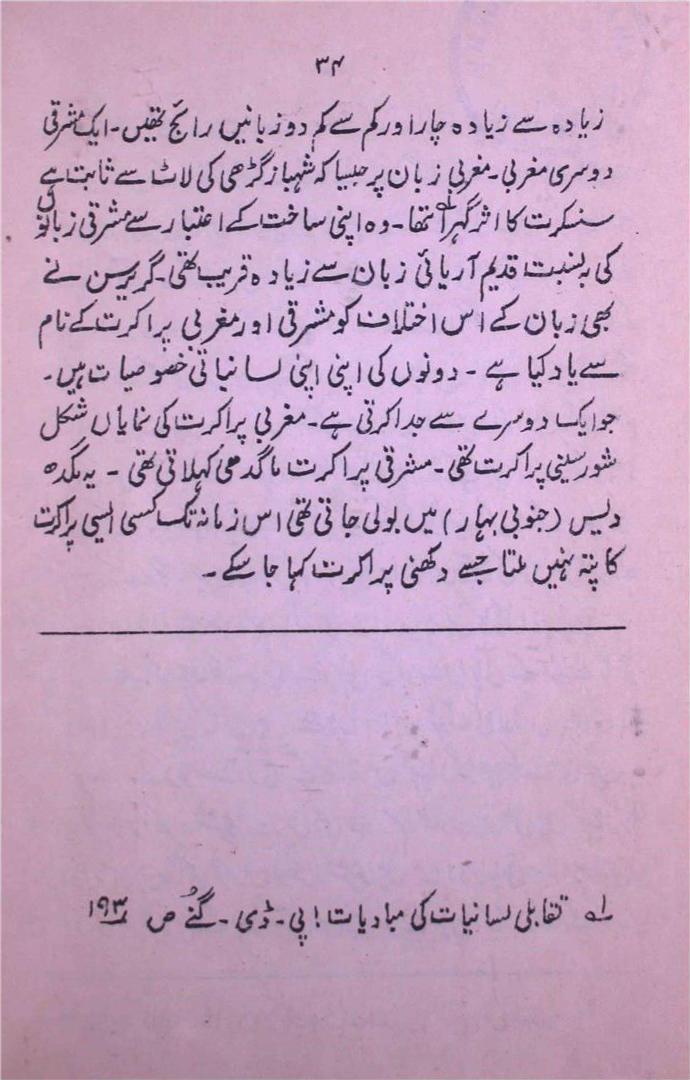 ۳۴
زیادہ سے زیادہ چار اور کم سے کم دو زبانیں رائج تھیں۔ ایک مشرقی
دوسری مغربی۔ مغربی زبان پر جیسا کہ شہباز گڑھی کی لاٹ سے ثابت ہے
سنسکرت کا اثر گہرا تھا۔ وہ اپنی ساخت کے اعتبار سے مشرقی زبانوں
کی بہ نسبت قدیم آریائی زبان سے زیادہ قریب تھی۔ گریرسن نے
بھی زبان کے اس اختلاف کو مشرقی اور مغربی پراکرت کے نام
سے یاد کیا ہے ۔ دونوں کی اپنی اپنی لسانیاتی خصوصیات ہیں۔
جو ایک دوسرے سے جدا کرتی ہے۔ مغربی پراکرت کی نمایاں شکل
شورسینی پراکرت تھی۔ مشرقی پراکرت ماگدھی کہلاتی تھی ۔ یہ مگدہ
دیس (جنوبی بہار) میں بولی جاتی تھی اس زمانہ تک کسی ایسی پراکرت
کا پتہ نہیں ملتا جسے دکھنی پراکرت کہا جا سکے ۔
؎۱ تقابلی لسانیات کی مبادیات! پی۔ ڈی۔ گُنے ص ۱۹۳